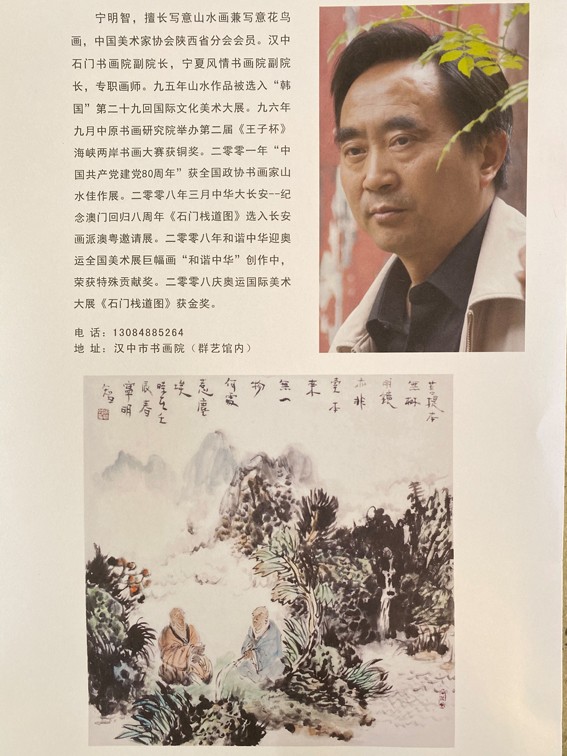 宁明智，擅长写意山水画兼写意花鸟
画，中国美术家协会陕西省分会会员。汉中
石门书画院副院长，宁夏风情书画院副院
长，专职画师。九五年山水作品被选入“韩
国”第二十九回国际文化美术大展。九六年
九月中原书画研究院举办第二届《王子杯》
海峡两岸书画大赛获铜奖。二零零一年“中
国共产党建党80周年”获全国政协书画家山
水佳作展。二零零八年三月中华大长安--纪
念澳门回归八周年《石门栈道图》选入长安
画派澳粤邀请展。二零零八年和谐中华迎奥
运全国美术展巨幅画“和谐中华”创作中，
荣获特殊贡献奖。二零零八庆奥运国际美术
大展《石门栈道图》获金奖。
电 话：13084885264
地 址：汉中市书画院（群艺馆内）
菩提本
無樹
明鏡
亦非
臺本
來
無一
物
何處
惹塵
埃
時在壬
辰春
寧明
智